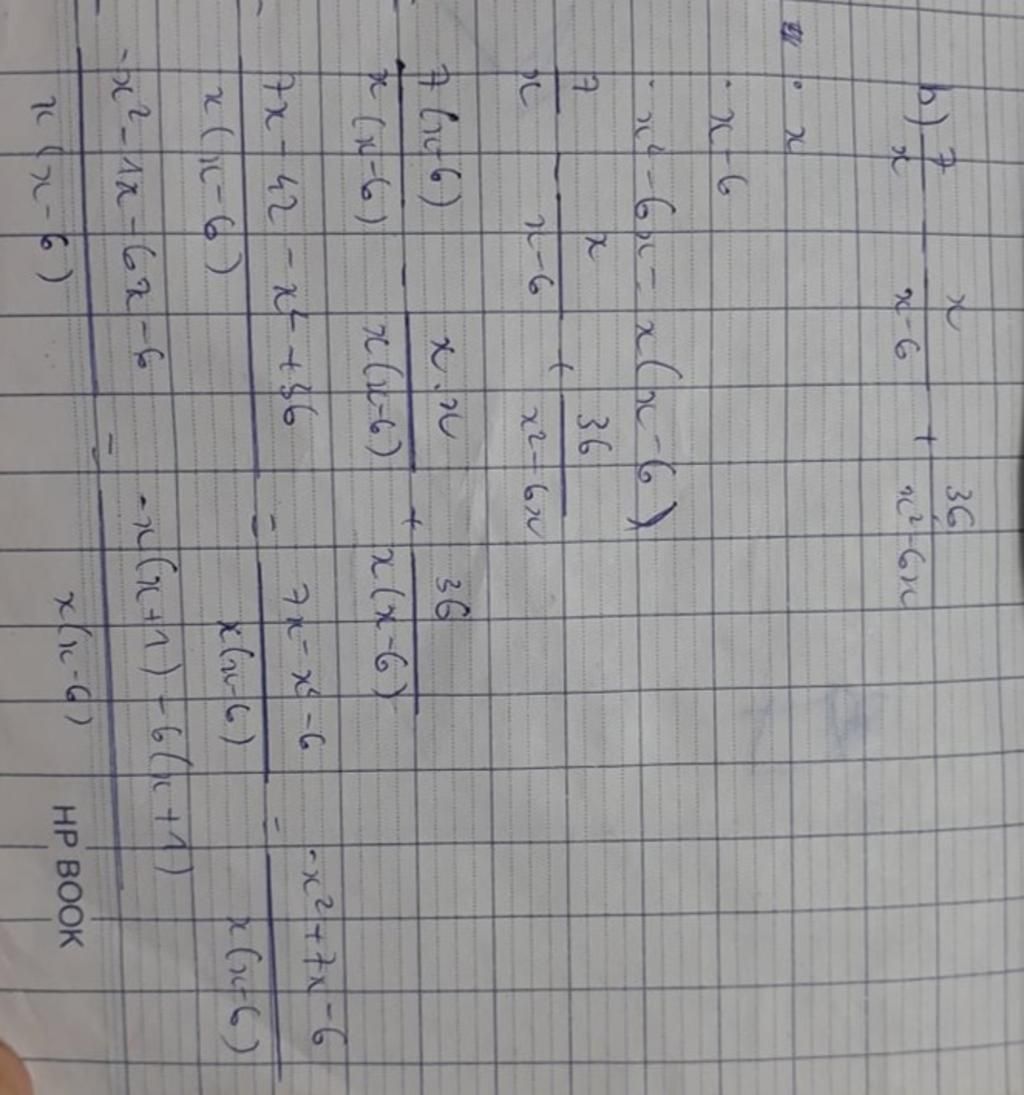 b) 7/x - x/(x-6) + 36/(x²-6x)
· x
· x-6
· x²-6x = x(x-6)
7/x - x/(x-6) + 36/(x²-6x)
7(x-6)/x(x-6) - x.x/x(x-6) + 36/x(x-6)
(7x-42-x²+36)/x(x-6) = (7x-x²-6)/x(x-6) = (-x²+7x-6)/x(x-6)
(-x²-1x-6x-6)/x(x-6) = (-x(x+1)-6(x+1))/x(x-6)
HP BOOK